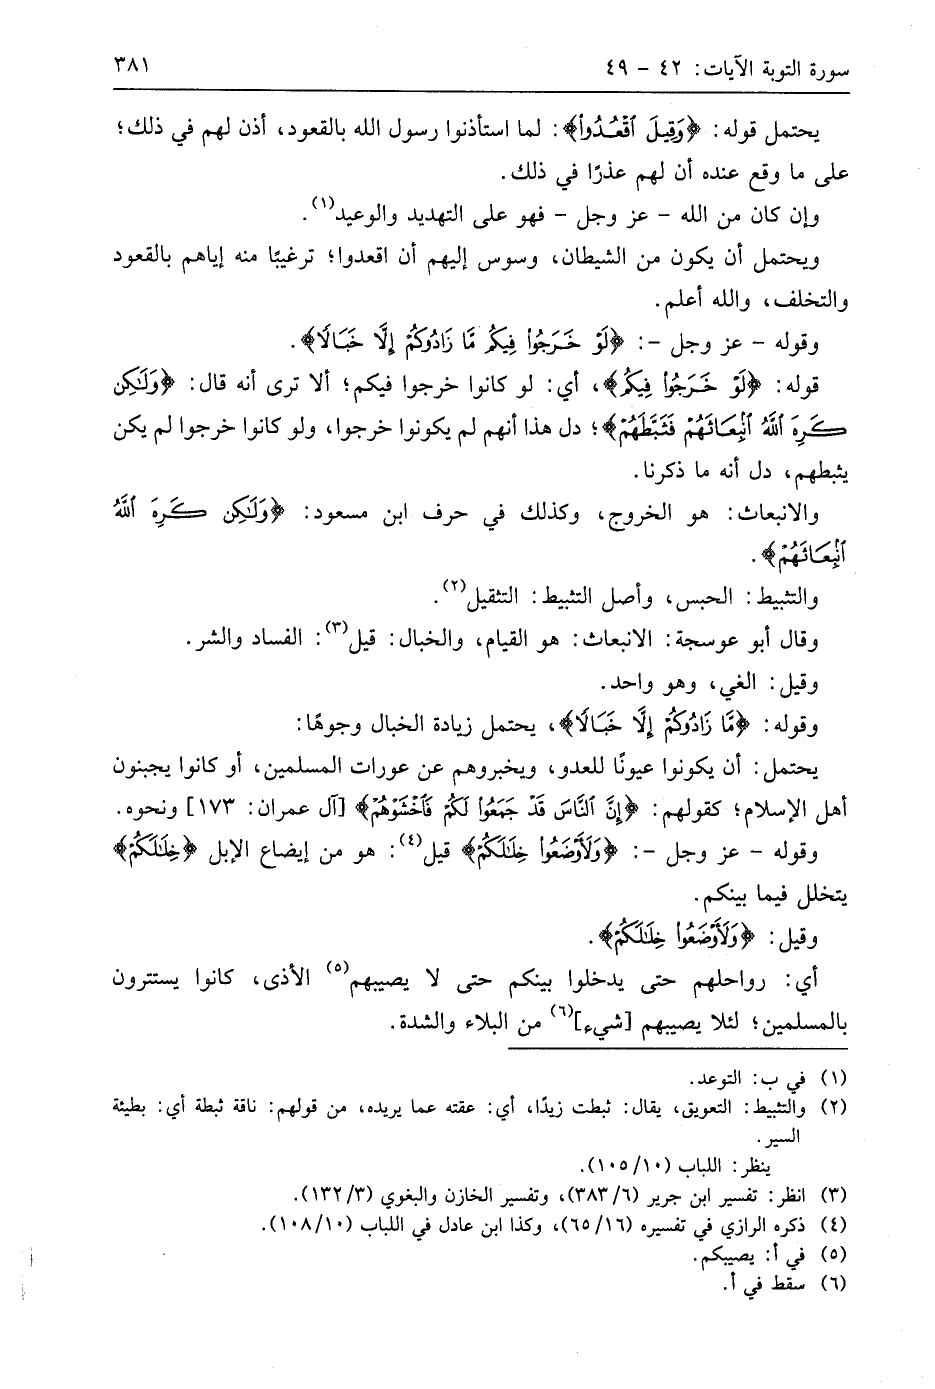 سورة التوبة الآيات: ٤٢ - ٤٩ ٣٨١
يحتمل قوله: ﴿وَقِيلَ ٱقْعُدُوا۟﴾: لما استأذنوا رسول الله بالقعود، أذن لهم في ذلك؛
على ما وقع عنده أن لهم عذرًا في ذلك.
وإن كان من الله - عز وجل - فهو على التهديد والوعيد(١).
ويحتمل أن يكون من الشيطان، وسوس إليهم أن اقعدوا؛ ترغيبًا منه إياهم بالقعود
والتخلف، والله أعلم.
وقوله - عز وجل -: ﴿لَوْ خَرَجُوا۟ فِيكُم مَّا زَادُوكُمْ إِلَّا خَبَالًا﴾.
قوله: ﴿لَوْ خَرَجُوا۟ فِيكُم﴾، أي: لو كانوا خرجوا فيكم؛ ألا ترى أنه قال: ﴿وَلَٰكِن
كَرِهَ ٱللَّهُ ٱنۢبِعَاثَهُمْ فَثَبَّطَهُمْ﴾؛ دل هذا أنهم لم يكونوا خرجوا، ولو كانوا خرجوا لم يكن
يثبطهم، دل أنه ما ذكرنا.
والانبعاث: هو الخروج، وكذلك في حرف ابن مسعود: ﴿وَلَٰكِن كَرِهَ ٱللَّهُ
ٱنۢبِعَاثَهُمْ﴾.
والتثبيط: الحبس، وأصل التثبيط: التثقيل(٢).
وقال أبو عوسجة: الانبعاث: هو القيام، والخبال: قيل(٣): الفساد والشر.
وقيل: الغي، وهو واحد.
وقوله: ﴿مَّا زَادُوكُمْ إِلَّا خَبَالًا﴾، يحتمل زيادة الخبال وجوهًا:
يحتمل: أن يكونوا عيونًا للعدو، ويخبروهم عن عورات المسلمين، أو كانوا يجبنون
أهل الإسلام؛ كقولهم: ﴿إِنَّ ٱلنَّاسَ قَدْ جَمَعُوا۟ لَكُمْ فَٱخْشَوْهُمْ﴾ [آل عمران: ١٧٣] ونحوه.
وقوله - عز وجل -: ﴿وَلَأَوْضَعُوا۟ خِلَٰلَكُمْ﴾ قيل(٤): هو من إيضاع الإبل ﴿خِلَٰلَكُمْ﴾
يتخلل فيما بينكم.
وقيل: ﴿وَلَأَوْضَعُوا۟ خِلَٰلَكُمْ﴾.
أي: رواحلهم حتى يدخلوا بينكم حتى لا يصيبهم(٥) الأذى، كانوا يستترون
بالمسلمين؛ لئلا يصيبهم [شيء](٦) من البلاء والشدة.
(١) في ب: التوعد.
(٢) والتثبيط: التعويق، يقال: ثبطت زيدًا، أي: عقته عما يريده، من قولهم: ناقة ثبطة أي: بطيئة
السير.
ينظر: اللباب (١٠/١٠٥).
(٣) انظر: تفسير ابن جرير (٦/٣٨٣)، وتفسير الخازن والبغوي (٣/١٣٢).
(٤) ذكره الرازي في تفسيره (١٦/٦٥)، وكذا ابن عادل في اللباب (١٠/١٠٨).
(٥) في أ: يصيبكم.
(٦) سقط في أ.